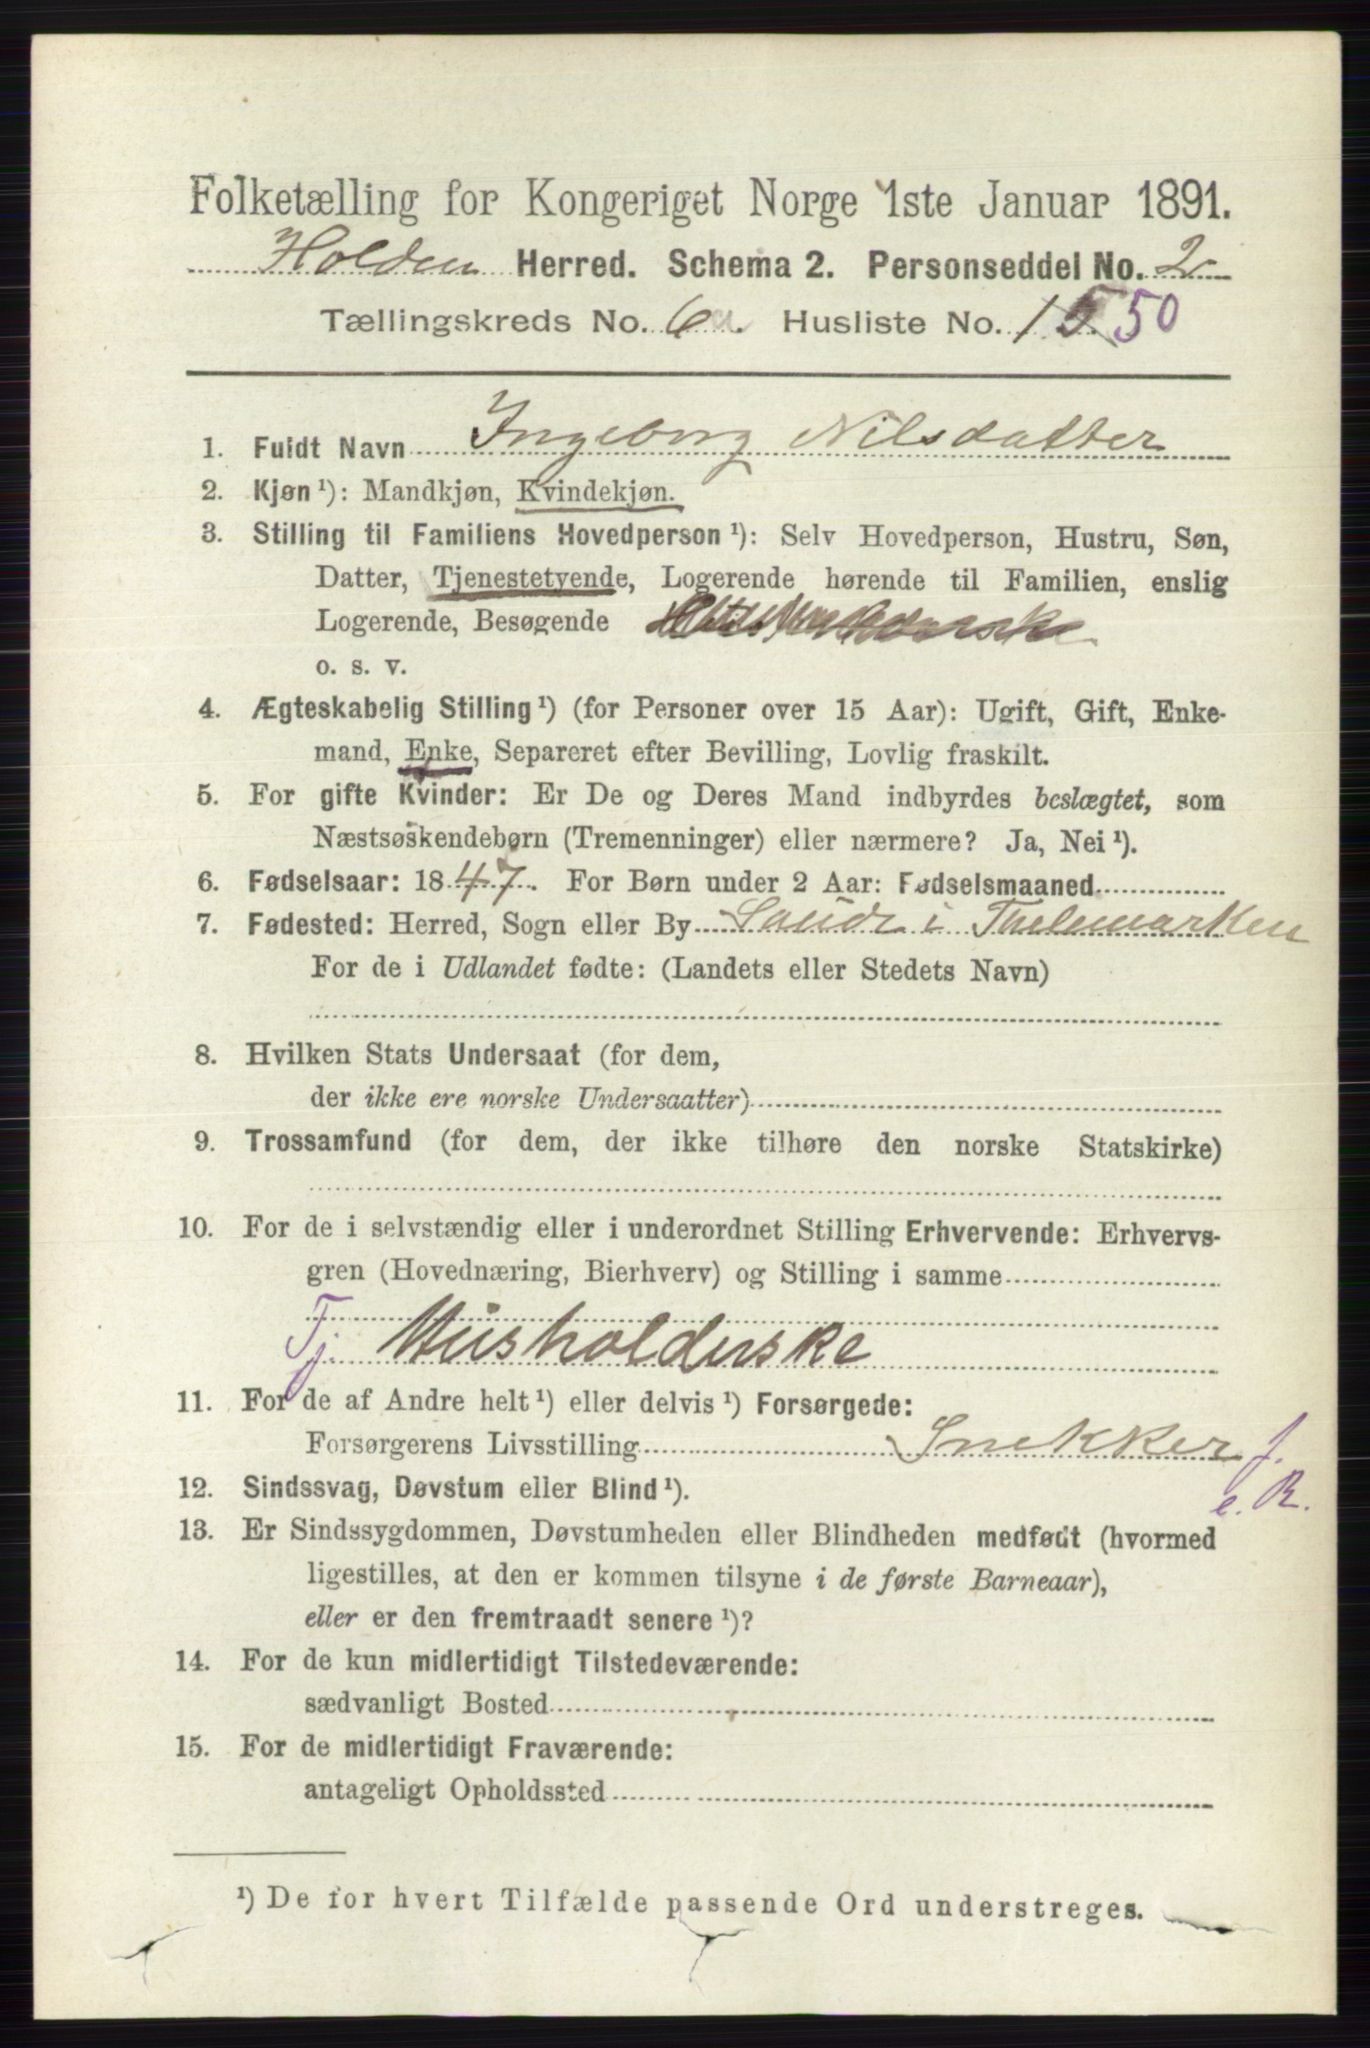 Folketælling for Kongeriget Norge 1ste Januar 1891.
Holden Herred. Schema 2. Personseddel No. 2
Tællingskreds No. 6a. Husliste No. 15 50
1. Fuldt Navn Ingeborg Nilsdatter
2. Kjøn¹): Mandkjøn, Kvindekjøn.
3. Stilling til Familiens Hovedperson¹): Selv Hovedperson, Hustru, Søn,
Datter, Tjenestetyende, Logerende hørende til Familien, enslig
Logerende, Besøgende
o. s. v.
4. Ægteskabelig Stilling¹) (for Personer over 15 Aar): Ugift, Gift, Enke-
mand, Enke, Separeret efter Bevilling, Lovlig fraskilt.
5. For gifte Kvinder: Er De og Deres Mand indbyrdes beslægtet, som
Næstsøskendebørn (Tremenninger) eller nærmere? Ja, Nei¹).
6. Fødselsaar: 1847. For Børn under 2 Aar: Fødselsmaaned
7. Fødested: Herred, Sogn eller By Saude i Thelemarken
For de i Udlandet fødte: (Landets eller Stedets Navn)
8. Hvilken Stats Undersaat (for dem,
der ikke ere norske Undersaatter)
9. Trossamfund (for dem, der ikke tilhøre den norske Statskirke)
10. For de i selvstændig eller i underordnet Stilling Erhvervende: Erhvervs-
gren (Hovednæring, Bierhverv) og Stilling i samme
Tj. Husholderske
11. For de af Andre helt¹) eller delvis¹) Forsørgede:
Forsørgerens Livsstilling Snekker f.
e. R.
12. Sindssvag, Døvstum eller Blind¹).
13. Er Sindssygdommen, Døvstumheden eller Blindheden medfødt (hvormed
ligestilles, at den er kommen tilsyne i de første Barneaar),
eller er den fremtraadt senere¹)?
14. For de kun midlertidigt Tilstedeværende:
sædvanligt Bosted
15. For de midlertidigt Fraværende:
antageligt Opholdssted
¹) De for hvert Tilfælde passende Ord understreges.